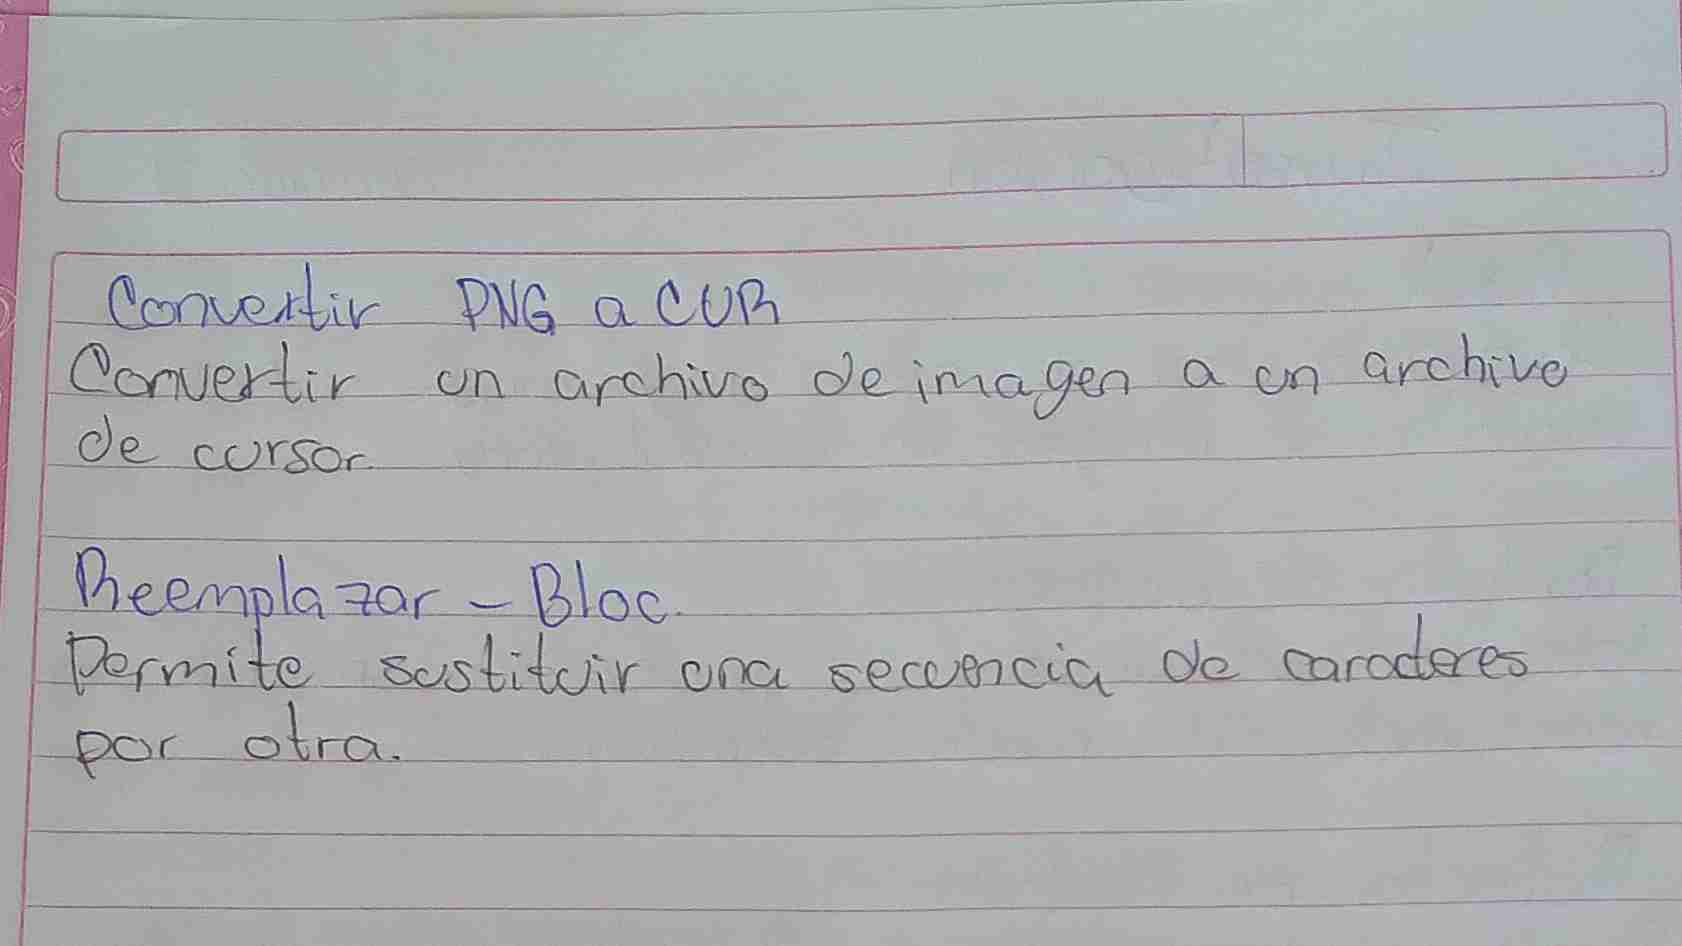 Convertir PNG a CUR
Convertir un archivo de imagen a un archivo
de cursor
Reemplazar - Bloc.
Permite sustituir una secuencia de caracteres
por otra.